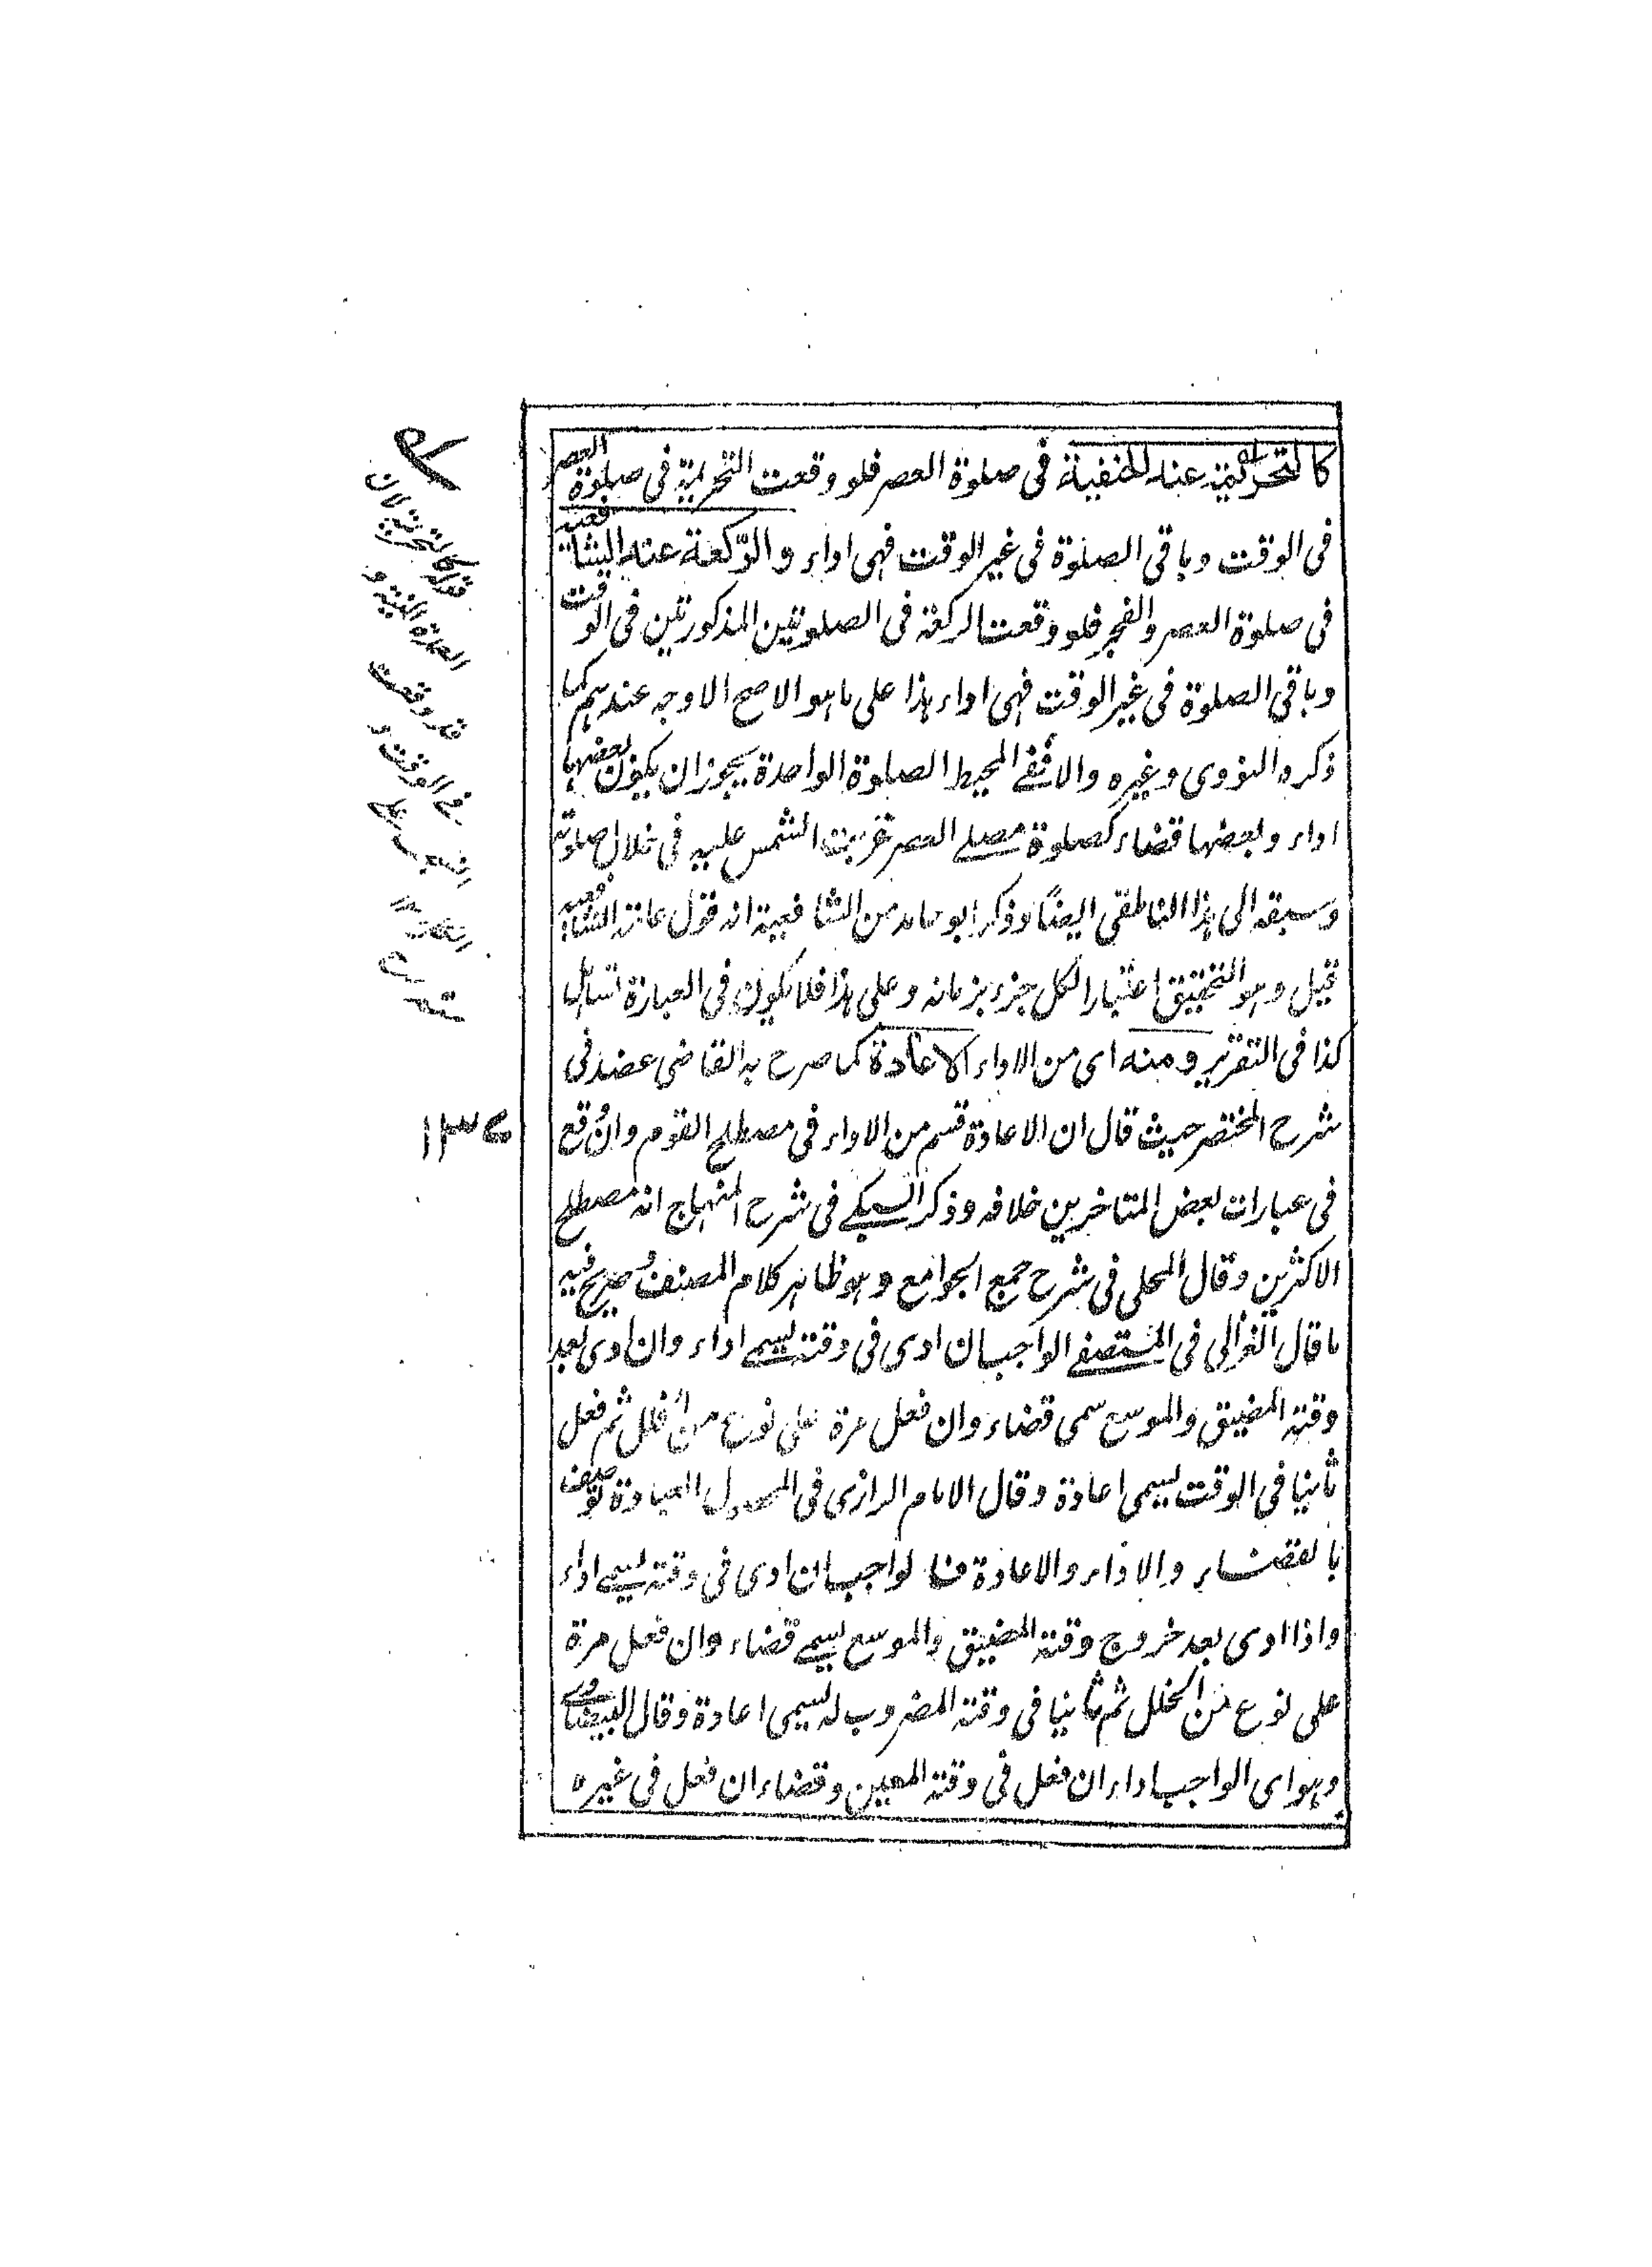 كالتحريمة عند الحنفية فى صلوة العصر فلو وقعت التحريمة فى صلوة العصر
فى الوقت وباقى الصلوة فى غير الوقت فهى اداء والركعة عند الشافعية
فى صلوة العصر والفجر فلو وقعت الركعة فى الصلوتين المذكورتين فى الوقت
وباقى الصلوة فى غير الوقت فهى اداء هذا على ما هو الاصح الاوجه عندهم كما
ذكره النووى وغيره والا ففى المحيط الصلوة الواحدة يجوز ان يكون بعضها
اداء وبعضها قضاء كصلوة مصلے العصر غربت الشمس عليه فى خلال صلوته
وسبقه الى هذا الناطقى ايضًا وذكر ابو حامد من الشافعية انه قول عامة الشافعية
قيل وهو التحقيق اعتبارا لكل جزء بزمانه وعلى هذا فلا يكون فى العبارة تساهل
كذا فى التقرير ومنه اى من الاداء الاعادة كما صرح به القاضى عضد فى
شرح المختصر حيث قال ان الاعادة قسم من الاداء فى مصطلح القوم وان وقع
فى عبارات بعض المتاخرين خلافه وذكر السبكے فى شرح المنهاج انه مصطلح
الاكثرين وقال المحلى فى شرح جمع الجوامع وهو ظاهر كلام المصنف وصريح فيه
ما قال الغزالى فى المستصفے الواجب ان ادى فى وقته يسمے اداء وان ادى بعد
وقته المضيق والموسع سمى قضاء وان فعل مرة على نوع من الخلل ثم فعل
ثانيا فى الوقت يسمى اعادة وقال الامام الرازى فى المحصول العبادة توصف
بالقضاء والاداء والاعادة فالواجب ان ادى فى وقته يسمے اداء
واذا ادى بعد خروج وقته المضيق والموسع يسمے قضاء وان فعل مرة
على نوع من الخلل ثم ثانيا فى وقته المضروب له يسمى اعادة وقال البيضاوے
وهو اى الواجب اداء ان فعل فى وقته المعين وقضاء ان فعل فى غيره